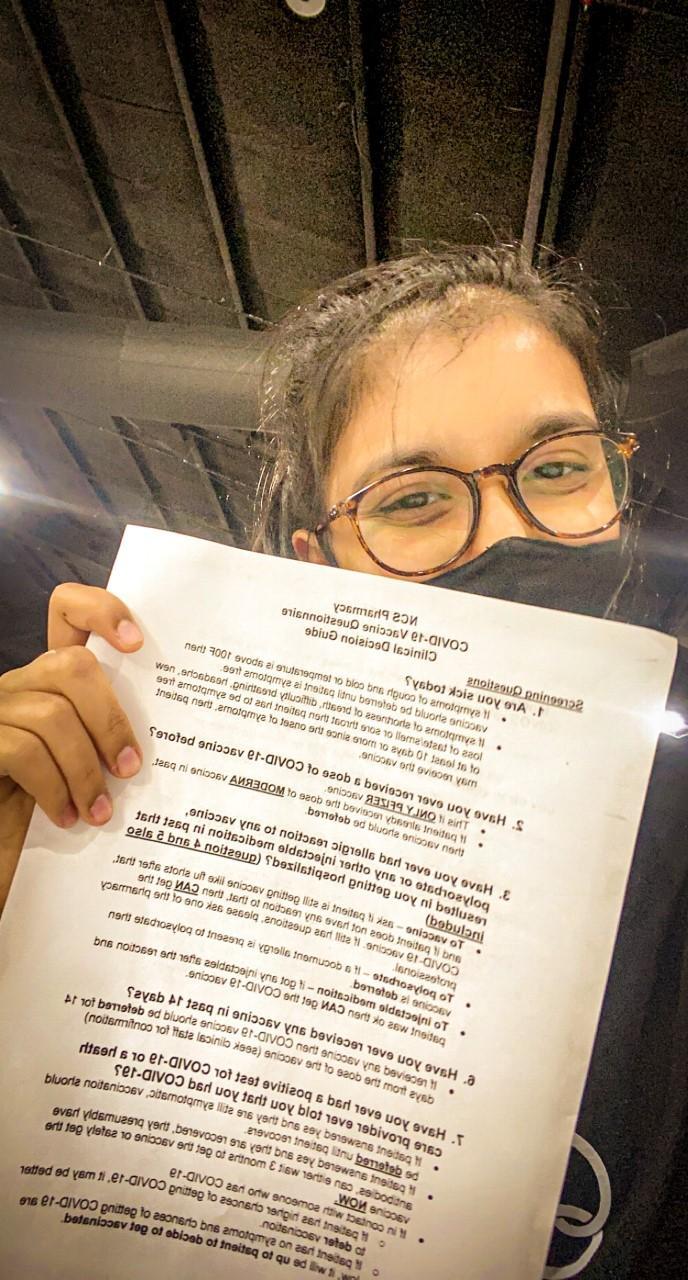 NCS Pharmacy
COVID-19 Vaccine Questionnaire
Clinical Decision Guide
Screening Questions
1. Are you sick today?
• If symptoms of cough and cold or temperature is above 100F then
vaccine should be deferred until patient is symptoms free.
• If symptoms of shortness of breath, difficulty breathing, headache, new
loss of taste/smell or sore throat then patient has to be symptoms free
of at least 10 days or more since the onset of symptoms, then patient
may receive the vaccine.
2. Have you ever received a dose of COVID-19 vaccine before?
• This if ONLY PFIZER vaccine.
• If patient already received the dose of MODERNA vaccine in past,
then vaccine should be deferred.
3. Have you ever had allergic reaction to any vaccine,
polysorbate or any other injectable medication in past that
resulted in you getting hospitalized? (question 4 and 5 also
included)
• To vaccine – ask if patient is still getting vaccine like flu shots after that,
and if patient does not have any reaction to that, then CAN get the
COVID-19 vaccine. If still has questions, please ask one of the pharmacy
professional.
• To polysorbate – if a document allergy is present to polysorbate then
vaccine is deferred.
• To injectable medication – if got any injectables after the reaction and
patient was ok then CAN get the COVID-19 vaccine.
6. Have you ever received any vaccine in past 14 days?
• If received any vaccine then COVID-19 vaccine should be deferred for 14
days from the dose of the vaccine (seek clinical staff for confirmation)
7. Have you ever had a positive test for COVID-19 or a heath
care provider ever told you that you had COVID-19?
• If patient answered yes and they are still symptomatic, vaccination should
be deferred until patient recovers.
• If patient answered yes and they are recovered, they presumably have
antibodies, can either wait 3 months to get the vaccine or safely get the
vaccine NOW.
• If in contact with someone who has COVID-19
○ If patient has higher chances of getting COVID-19, it may be better
to defer vaccination.
○ If patient has no symptoms and chances of getting COVID-19 are
low, it will be up to patient to decide to get vaccinated.